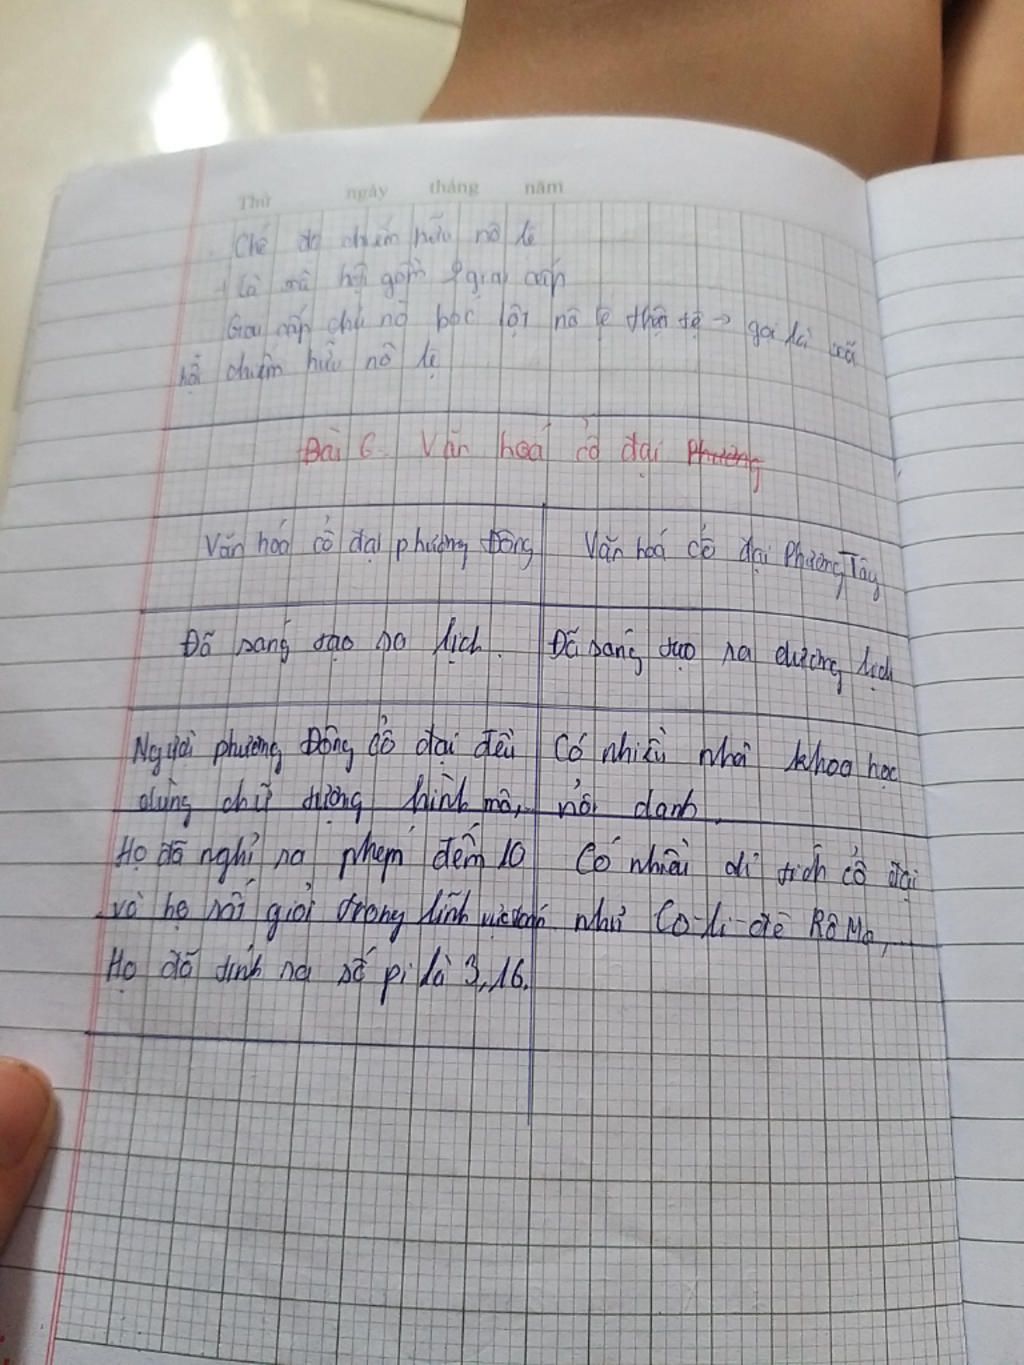 Thứ ngày tháng năm
Chế độ chiếm hữu nô lệ
+ Là xã hội gồm 2 giai cấp
Giai cấp chủ nô bóc lột nô lệ thậm tệ → gọi là xã
hội chiếm hữu nô lệ
Bài 6. Văn hoá cổ đại Phương
Văn hoá cổ đại phương Đông
Văn hoá cổ đại Phương Tây
Đã sáng tạo ra lịch.
Đã sáng tạo ra dương lịch
Người phương Đông cổ đại đều
dùng chữ tượng hình mô,
Có nhiều nhà khoa học
nổi danh.
Họ đã nghỉ ra phép đếm 10
và họ rất giỏi trong lĩnh vực
Họ đã tính ra số pi là 3,16.
Có nhiều di tích cổ đại
như Cô-li-dê RôMa,